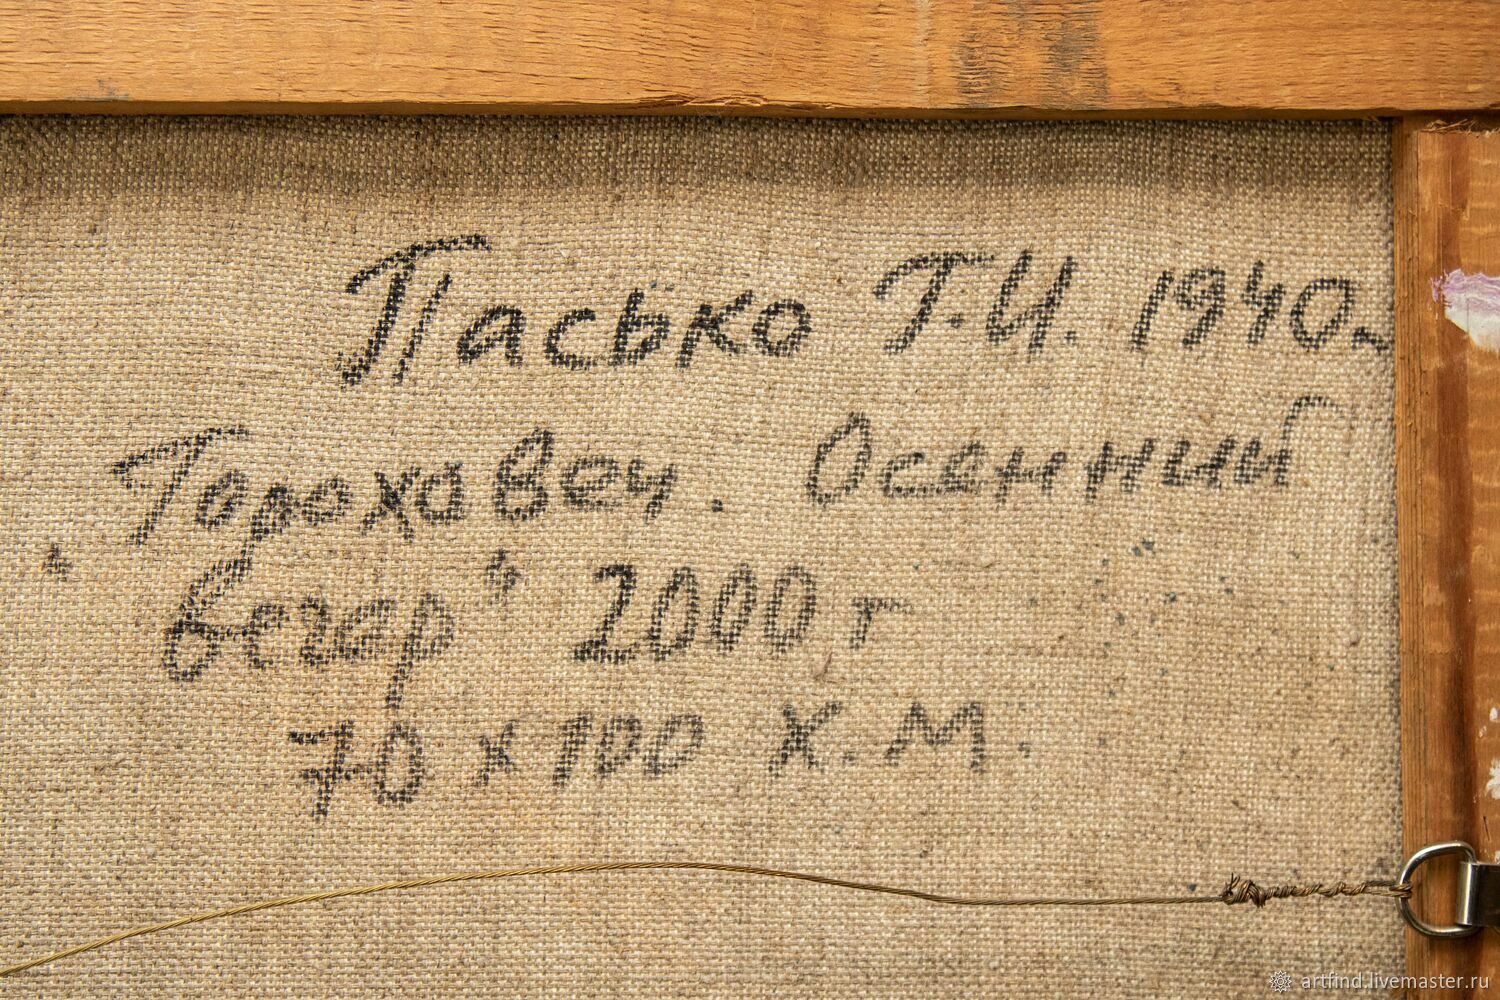 Пасько Т.И. 1940г.
"Гороховец. Осенний
вечер" 2000 г
70 х 100 х.м.
artfind.livemaster.ru